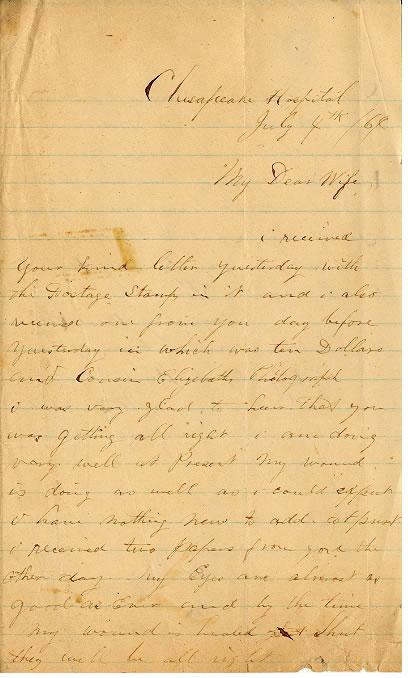 Chesapeake Hospital
July 4th /64
My Dear Wife
i received
your kind letter yesterday with
the Postage Stamp in it and i also
received one from you day before
yesterday in which was ten Dollars
and Cousin Elizabeths Photograph
i was very glad to hear that you
was getting all right i am doing
very well at Present My wound
is doing as well as i could expect
i have nothing new to add at present
i received two papers from you the
other day My Eyes are almost as
good as Ever and by the time
My wound is healed shut
they will be all right